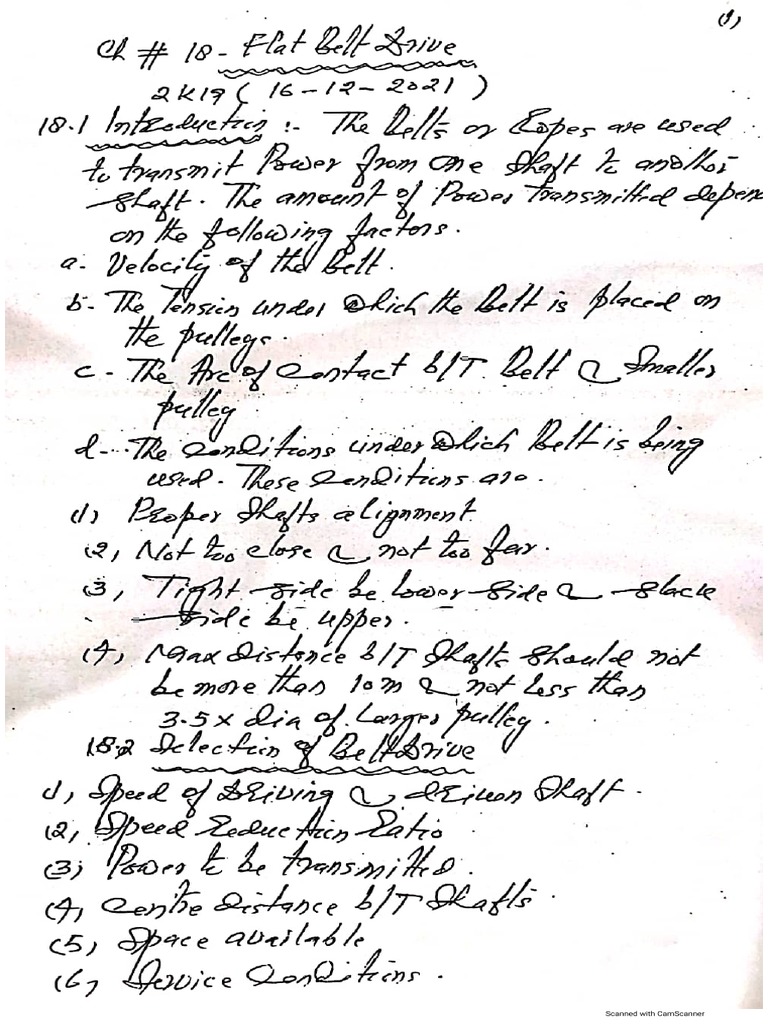 (1)
Ch # 18 - Flat Belt Drive
2K19 ( 16-12-2021 )
18.1 Introduction :- The Belts or Ropes are used
to transmit Power from one shaft to another
shaft. The amount of Power transmitted depen
on the following factors.
a- Velocity of the Belt.
b- The Tension under which the Belt is placed on
the pulleys.
c- The Arc of Contact b/T Belt & Smaller
pulley
d-- The Conditions under which Belt is being
used. These Conditions are.
(1) Proper Shafts alignment
(2) Not too close & not too far.
(3) Tight side be lower side & slack
side be upper.
(4) Max distance b/T Shafts should not
be more than 10m & not less than
3.5x dia of larger pulley.
18.2 Selection of Belt Drive
(1) Speed of Driving & driven Shaft.
(2) Speed Reduction Ratio
(3) Power to be transmitted.
(4) Centre distance b/T Shafts.
(5) Space available
(6) Service Conditions.
Scanned with CamScanner